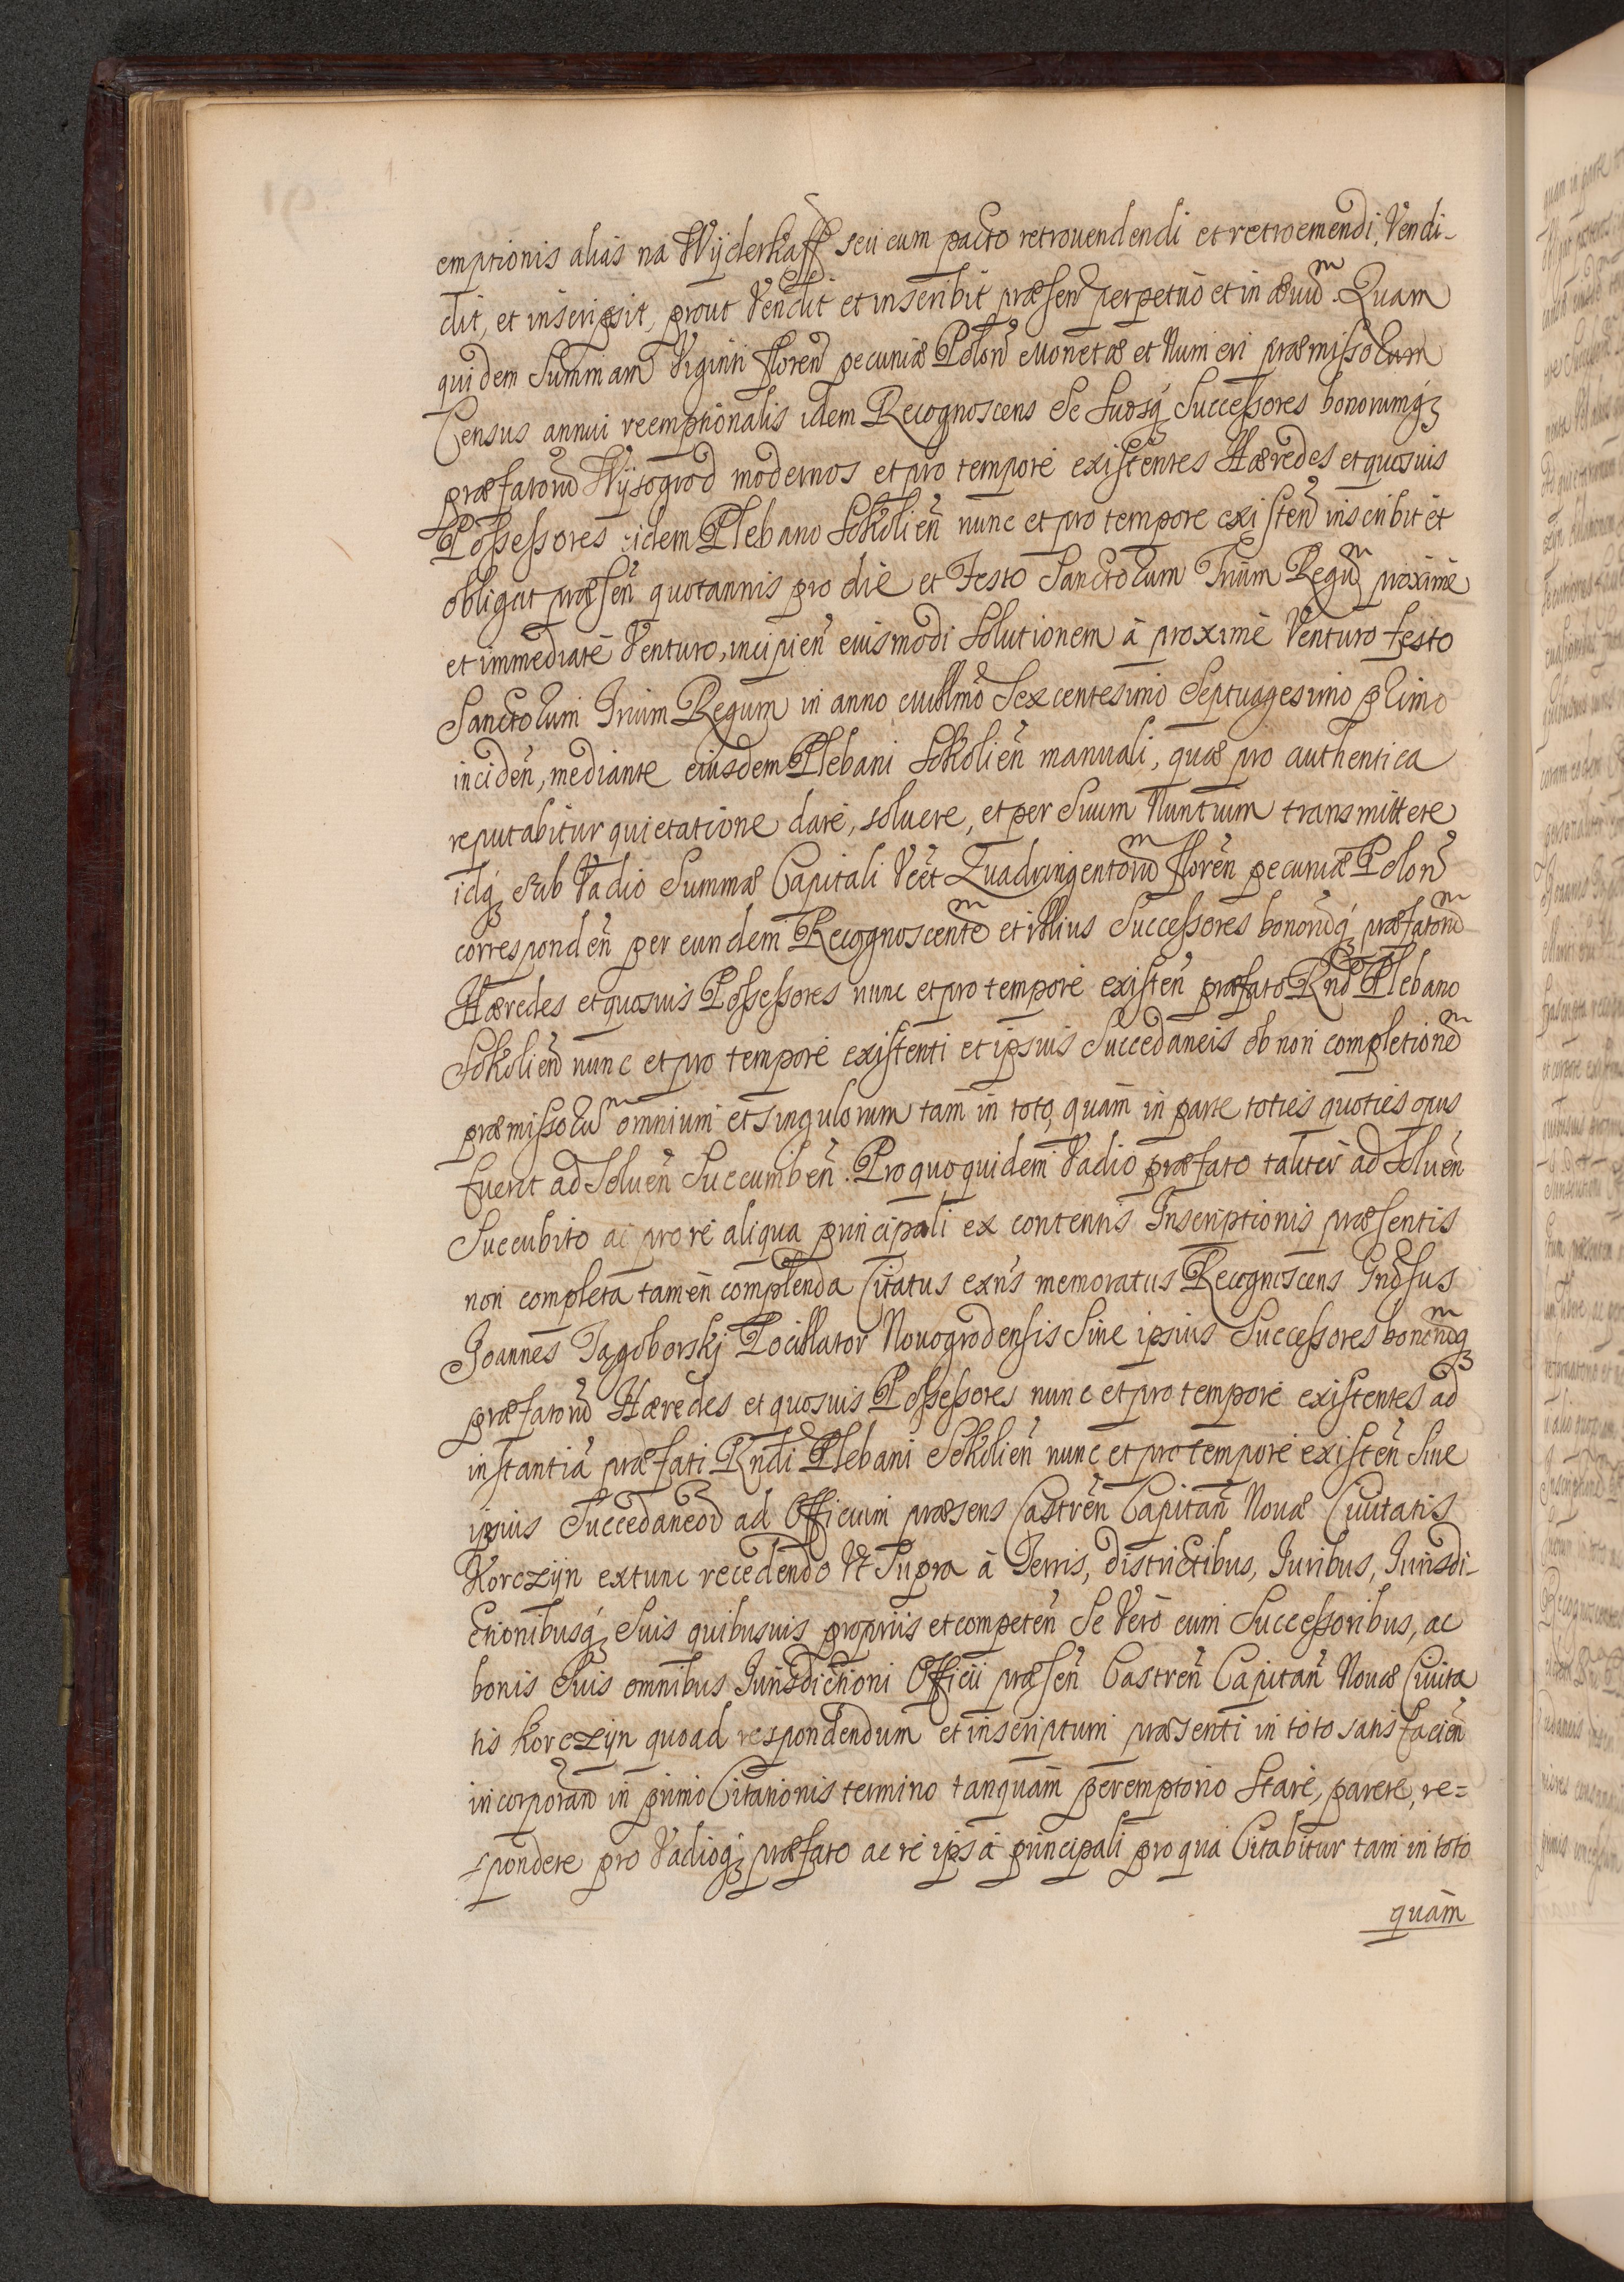 emptionis alias na Wÿderkaff seu cum pacto retrouendendi et retroemendi, Vendi-
dit, et inscripsit, prout Vendit et inscribit præsen perpetuò et in æuum. Quam
quidem Summam Viginti floren pecuniæ Polon Monetæ et Numeri præmissorum
Census annui reemptionalis idem Recognoscens Se Suosq₃ Successores bonorumq₃
præfatorum Wÿsogrod modernos et pro tempore existentes Hæredes et quosuis
Possessores eidem Plebano Sokolien nunc et pro tempore existen inscribit et
obligat præsen quotannis pro die et Festo Sanctorum Trium Regum proximè
et immediatè Venturo, incipien eiusmodi Solutionem à proximè Venturo festo
Sanctorum Trium Regum in anno Millmo Sexcentesimo Septuagesimo primo
inciden, mediante eiusdem Plebani Sokolien manuali, quæ pro authentica
reputabitur quietatione dare, soluere, et per Suum Nuntium transmittere
idq₃ sub Vadio Summæ Capitali Vęt Quadringentorum floren pecuniæ Polon
corresponden per eundem Recognoscentem et illius Successores bonorumq₃ præfatorum
Hæredes et quosuis Possessores nunc et pro tempore existen præfato Rndo Plebano
Sokolien nunc et pro tempore existenti et ipsius Succedaneis ob non completionem
præmissorum omnium et singulorum tam in toto, quàm in parte toties quoties opus
fuerit ad Soluen Succumben. Pro quo quidem Vadio præfato taliter ad Soluen
Succubito ac pro re aliqua principali ex contentis Inscriptionis præsentis
non completa tamen complenda Citatus exns memoratus Recognoscens Gndsus
Joannes Jagoborskj Pocillator Nouogrodensis Siue ipsius Successores bonorumq₃
præfatorum Hæredes et quosuis Possessores nunc et pro tempore existentes ad
instantiã præfati Rndi Plebani Sokolien nunc et pro tempore existen Siue
ipsius Succedaneor ad Officium præsens Castren Capitan Nouæ Ciuitatis
Korczÿn extunc recedendo Vt Supra à Terris, districtibus, Juribus, Jurisdi-
ctionibusq₃ Suis quibusuis proprijs et competen Se Verò cum Successoribus, ac
bonis Suis omnibus Jurisdictioni Officii præsen Castren Capitan Nouæ Ciuita
tis Korczÿn quoad respondendum et inscriptum præsenti in toto satisfacien
incorporand in primo Citationis termino tanquam peremptorio Stare, parere, re=
spondere pro Vadioq₃ præfato ac re ipsa principali pro qua Citabitur tam in toto
quàm